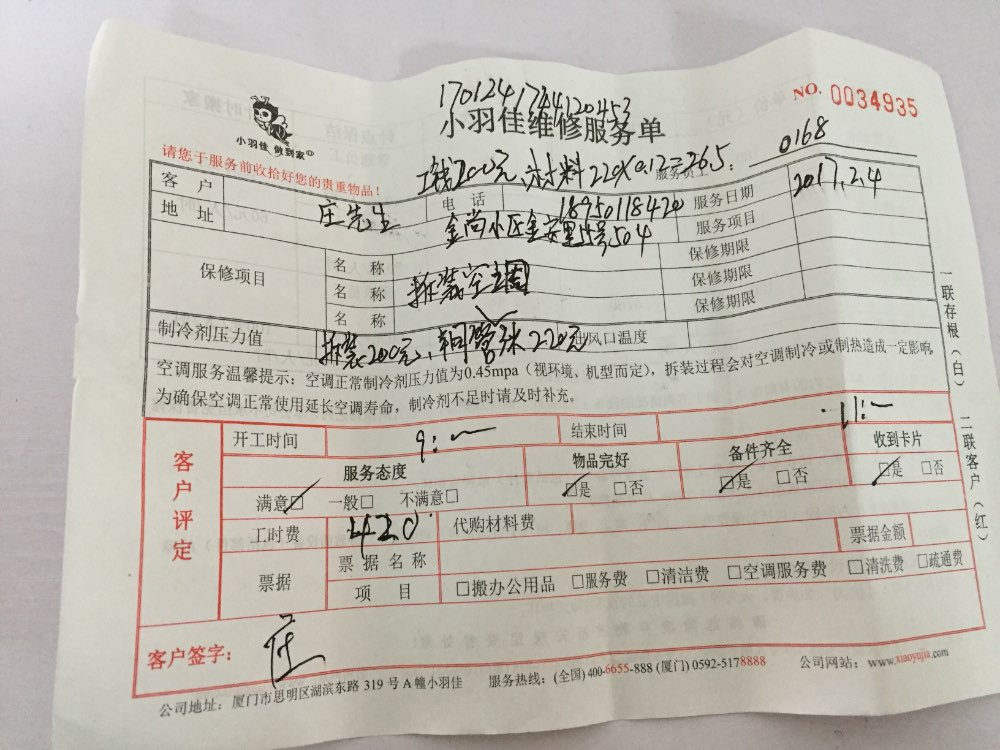 1701241744120453
NO. 0034935
小羽佳 做到家
小羽佳维修服务单
请您于服务前收拾好您的贵重物品！
工钱200元 材料220X0.12=26.5. 服务员工 0168
客 户 庄先生 电 话 18950118420 服务日期 2017.2.4
地 址 金尚小区金安里55号504 服务项目
保修项目 名 称 保修期限
名 称 拆装空调 保修期限
名 称 保修期限
制冷剂压力值 拆装200元、铜管1米220元 出风口温度
空调服务温馨提示：空调正常制冷剂压力值为0.45mpa（视环境、机型而定），拆装过程会对空调制冷或制热造成一定影响，
为确保空调正常使用延长空调寿命，制冷剂不足时请及时补充。
一联存根（白） 二联客户（红）
客户评定
开工时间 9: 结束时间 11:
服务态度 物品完好 备件齐全 收到卡片
满意□ 一般□ 不满意□ □是 □否 □是 □否 □是 □否
工时费 420 代购材料费 票据金额
票据 票据名称
项 目 □搬办公用品 □服务费 □清洁费 □空调服务费 □清洗费 □疏通费
客户签字： 庄
公司地址：厦门市思明区湖滨东路 319 号 A 幢小羽佳 服务热线：(全国) 400-6655-888 (厦门) 0592-5178888 公司网站：www.xiaoyujia.com